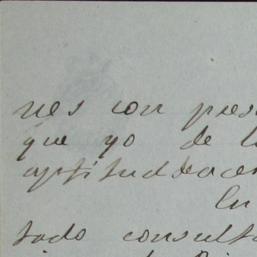 nes con pres
que yo de l
aptitud
En
todo consulta